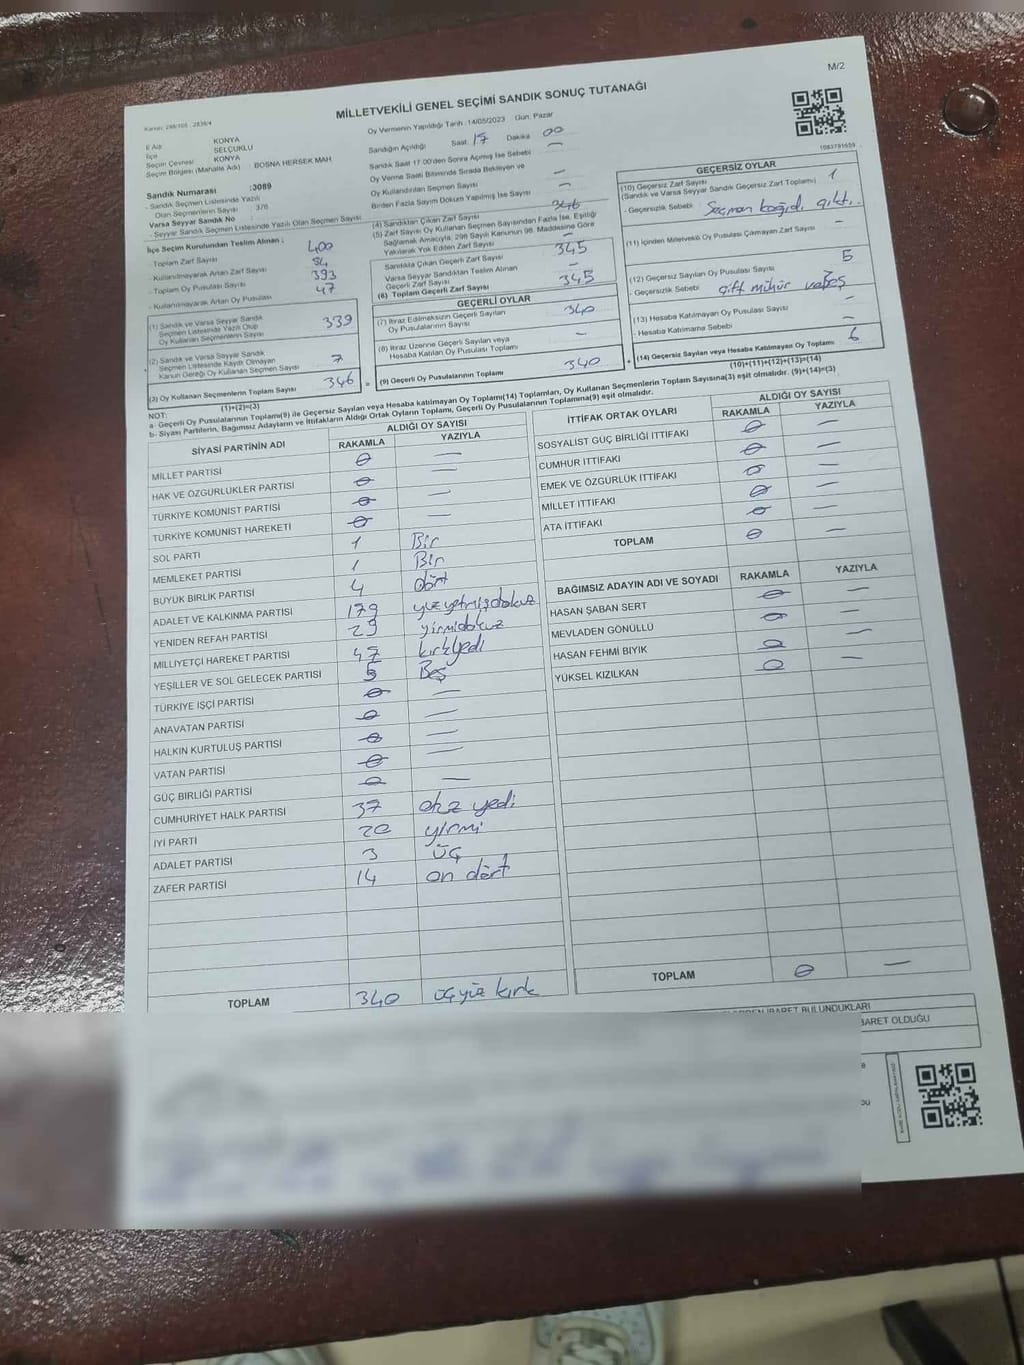 M/2
MİLLETVEKİLİ GENEL SEÇİMİ SANDIK SONUÇ TUTANAĞI
Oy Vermenin Yapıldığı Tarih :14/05/2023 Gün: Pazar
İl Adı : KONYA
İlçe : SELÇUKLU
Seçim Çevresi : KONYA
Seçim Bölgesi (Mahalle Adı) : BOSNA HERSEK MAH
Sandık Numarası :3089
- Sandık Seçmen Listesinde Yazılı
Olan Seçmenlerin Sayısı : 376
Varsa Seyyar Sandık No :
- Seyyar Sandık Seçmen Listesinde Yazılı Olan Seçmen Sayısı
İlçe Seçim Kurulundan Teslim Alınan ;
- Toplam Zarf Sayısı 400
- Kullanılmayarak Artan Zarf Sayısı 54
- Toplam Oy Pusulası Sayısı 393
- Kullanılmayarak Artan Oy Pusulası 47
(1) Sandık ve Varsa Seyyar Sandık
Seçmen Listesinde Yazılı Olup
Oy Kullanan Seçmenlerin Sayısı 339
(2) Sandık ve Varsa Seyyar Sandık
Seçmen Listesinde Kaydı Olmayan
Kanun Gereği Oy Kullanan Seçmen Sayısı 7
(3) Oy Kullanan Seçmenlerin Toplam Sayısı 346
(1)+(2)=(3)
Sandığın Açıldığı Saat: 17 Dakika 00
Sandık Saat 17:00'den Sonra Açılmış İse Sebebi —
Oy Verme Saati Bitiminde Sırada Bekleyen ve
Oy Kullandırılan Seçmen Sayısı —
Birden Fazla Sayım Döküm Yapılmış İse Sayısı —
(4) Sandıktan Çıkan Zarf Sayısı 346
(5) Zarf Sayısı Oy Kullanan Seçmen Sayısından Fazla İse, Eşitliği
Sağlamak Amacıyla, 298 Sayılı Kanunun 98. Maddesine Göre
Yakılarak Yok Edilen Zarf Sayısı —
Sandıkta Çıkan Geçerli Zarf Sayısı 345
Varsa Seyyar Sandıktan Teslim Alınan
Geçerli Zarf Sayısı —
(6) Toplam Geçerli Zarf Sayısı 345
GEÇERLİ OYLAR
(7) İtiraz Edilmeksizin Geçerli Sayılan
Oy Pusulalarının Sayısı 340
(8) İtiraz Üzerine Geçerli Sayılan veya
Hesaba Katılan Oy Pusulası Toplamı —
(9) Geçerli Oy Pusulalarının Toplamı 340
GEÇERSİZ OYLAR
(10) Geçersiz Zarf Sayısı 1
(Sandık ve Varsa Seyyar Sandık Geçersiz Zarf Toplamı)
- Geçersizlik Sebebi : Seçmen kağıdı çıktı.
(11) İçinden Milletvekili Oy Pusulası Çıkmayan Zarf Sayısı —
(12) Geçersiz Sayılan Oy Pusulası Sayısı 5
- Geçersizlik Sebebi çift mühür
(13) Hesaba Katılmayan Oy Pusulası Sayısı —
- Hesaba Katılmama Sebebi —
(14) Geçersiz Sayılan veya Hesaba Katılmayan Oy Toplamı 6
(10)+(11)+(12)+(13)=(14)
NOT:
a- Geçerli Oy Pusulalarının Toplamı(9) ile Geçersiz Sayılan veya Hesaba katılmayan Oy Toplamı(14) Toplamları, Oy Kullanan Seçmenlerin Toplam Sayısına(3) eşit olmalıdır. (9)+(14)=(3)
b- Siyasi Partilerin, Bağımsız Adayların ve İttifakların Aldığı Ortak Oyların Toplamı, Geçerli Oy Pusulalarının Toplamına(9) eşit olmalıdır.
SİYASİ PARTİNİN ADI ALDIĞI OY SAYISI
RAKAMLA YAZIYLA
MİLLET PARTİSİ 0 —
HAK VE ÖZGÜRLÜKLER PARTİSİ 0 —
TÜRKİYE KOMÜNİST PARTİSİ 0 —
TÜRKİYE KOMÜNİST HAREKETİ 0 —
SOL PARTİ 1 Bir
MEMLEKET PARTİSİ 1 Bir
BÜYÜK BİRLİK PARTİSİ 4 dört
ADALET VE KALKINMA PARTİSİ 179 yüzyetmişdokuz
YENİDEN REFAH PARTİSİ 29 yirmidokuz
MİLLİYETÇİ HAREKET PARTİSİ 47 kırkyedi
YEŞİLLER VE SOL GELECEK PARTİSİ 5 Beş
TÜRKİYE İŞÇİ PARTİSİ 0 —
ANAVATAN PARTİSİ 0 —
HALKIN KURTULUŞ PARTİSİ 0 —
VATAN PARTİSİ 0 —
GÜÇ BİRLİĞİ PARTİSİ 0 —
CUMHURİYET HALK PARTİSİ 37 otuz yedi
İYİ PARTİ 20 yirmi
ADALET PARTİSİ 3 üç
ZAFER PARTİSİ 14 on dört
TOPLAM 340 üçyüz kırk
İTTİFAK ORTAK OYLARI ALDIĞI OY SAYISI
RAKAMLA YAZIYLA
SOSYALİST GÜÇ BİRLİĞİ İTTİFAKI 0 —
CUMHUR İTTİFAKI 0 —
EMEK VE ÖZGÜRLÜK İTTİFAKI 0 —
MİLLET İTTİFAKI 0 —
ATA İTTİFAKI 0 —
TOPLAM 0 —
BAĞIMSIZ ADAYIN ADI VE SOYADI RAKAMLA YAZIYLA
HASAN ŞABAN SERT 0 —
MEVLADEN GÖNÜLLÜ 0 —
HASAN FEHMİ BIYIK 0 —
YÜKSEL KIZILKAN 0 —
TOPLAM 0 —
İBARET BULUNDUKLARI
BARET OLDUĞU